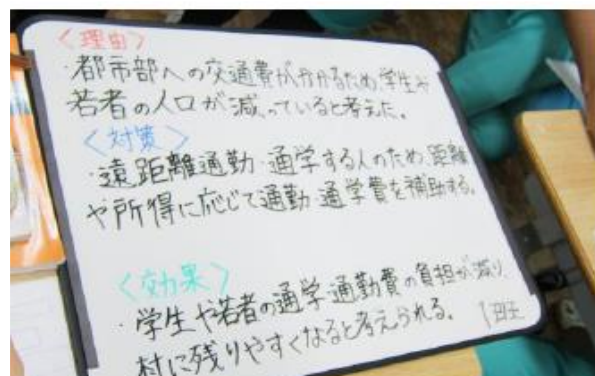 〈理由〉
・都市部への交通費がかかるため、学生や
若者の人口が減っていると考えた。
〈対策〉
・遠距離通勤・通学する人のため、距離
や所得に応じて通勤・通学費を補助する。
〈効果〉
・学生や若者の通学・通勤費の負担が減り、
村に残りやすくなると考えられる。
1班